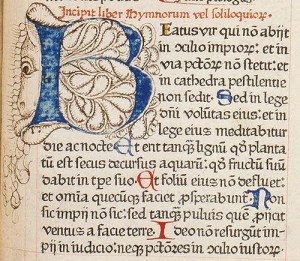 Incipit liber hymnorum vel soliloquiorꝝ
BEatus vir qui nō abijt
in ɔcilio impiorꝝ: et in
via pctorꝝ nō stetit: et in
cathedra pestilentie
non sedit. Sed in lege
dni volūtas eius: et in
lege eius meditabitur
die ac nocte. Et erit tanqȝ lignū qd planta
tū est secus decursus aquarū: qd fructū suū
dabit in tpe suo. Et foliū eius nō defluet:
et omīa quecūqȝ faciet prosperabunt. Non
sic impij nō sic: sed tanqȝ puluis quē proijcit
ventus a facie terre. Ideo nō resurgūt im-
pij in iudicio: neqȝ pctores in ɔcilio iustorꝝ.